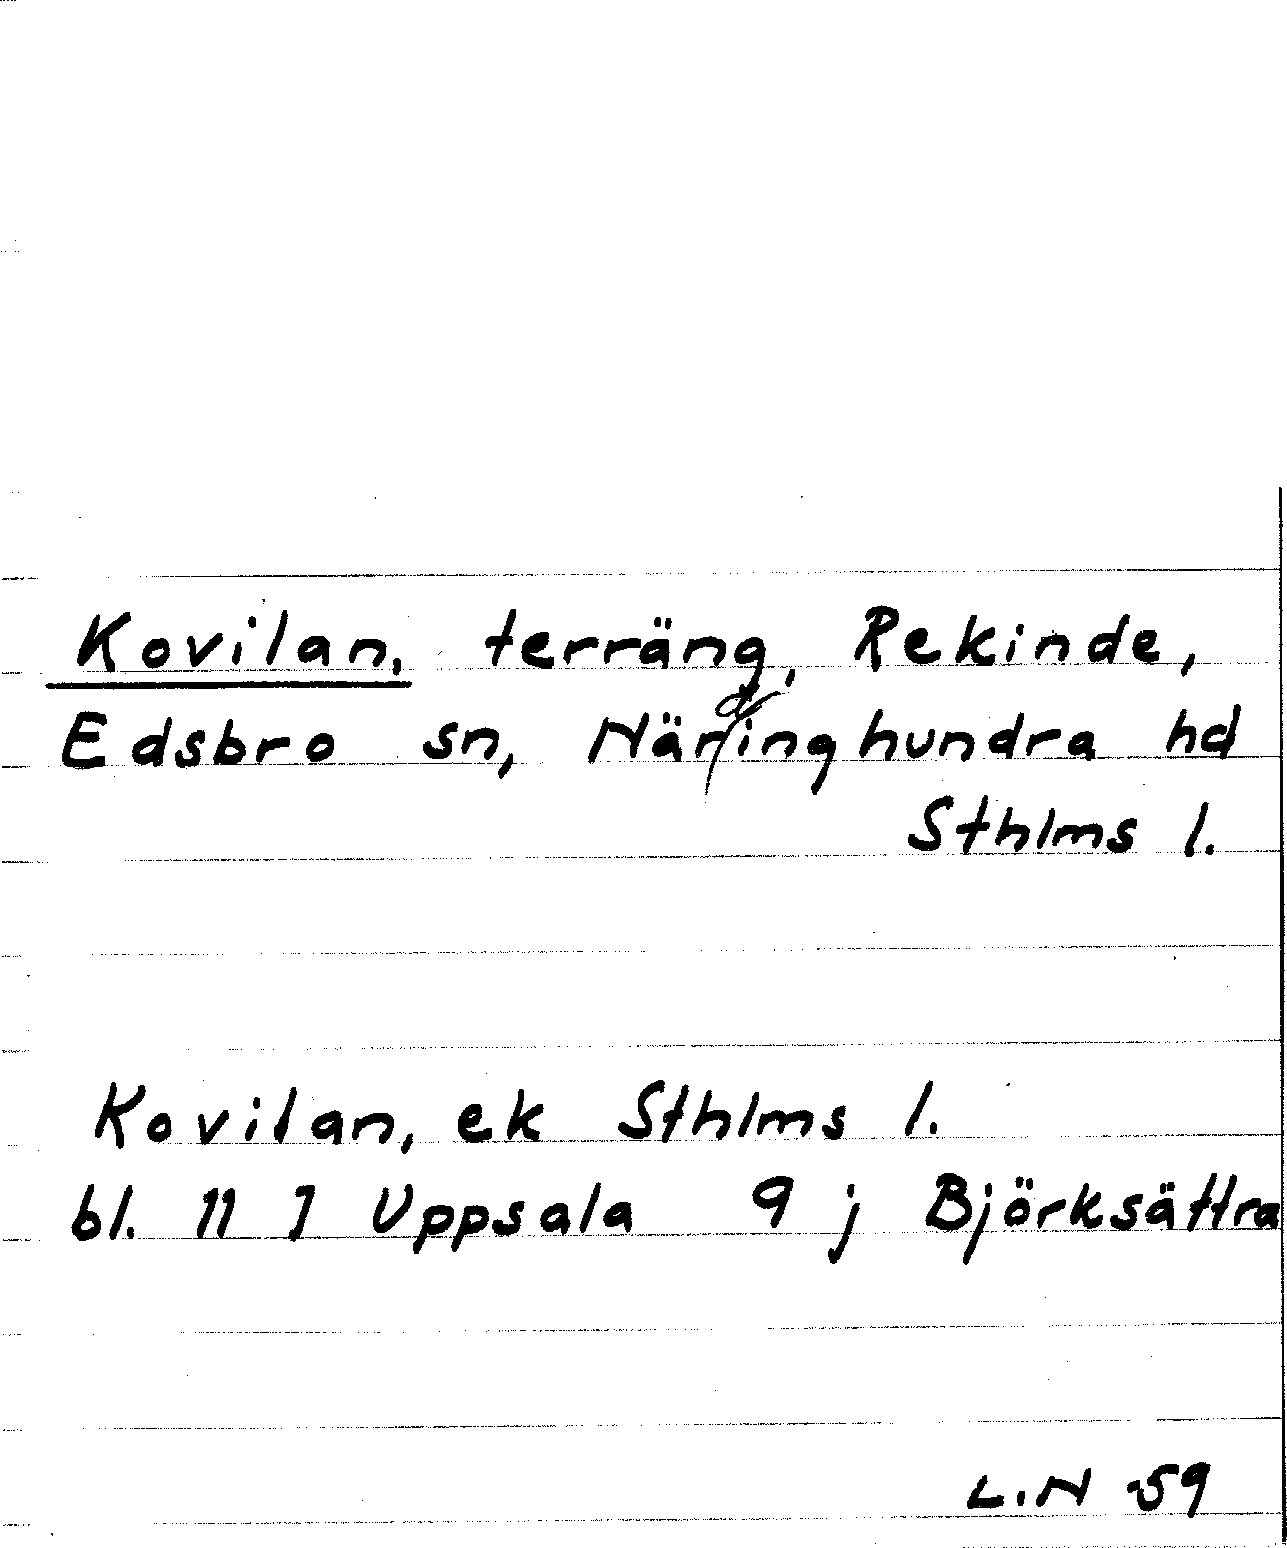 Kovilan, terräng, Rekinde,
Edsbro sn, Närdinghundra hd
Sthlms l.
Kovilan, ek Sthlms l.
bl. 11 I Uppsala 9 j Björksättra
L.N -59